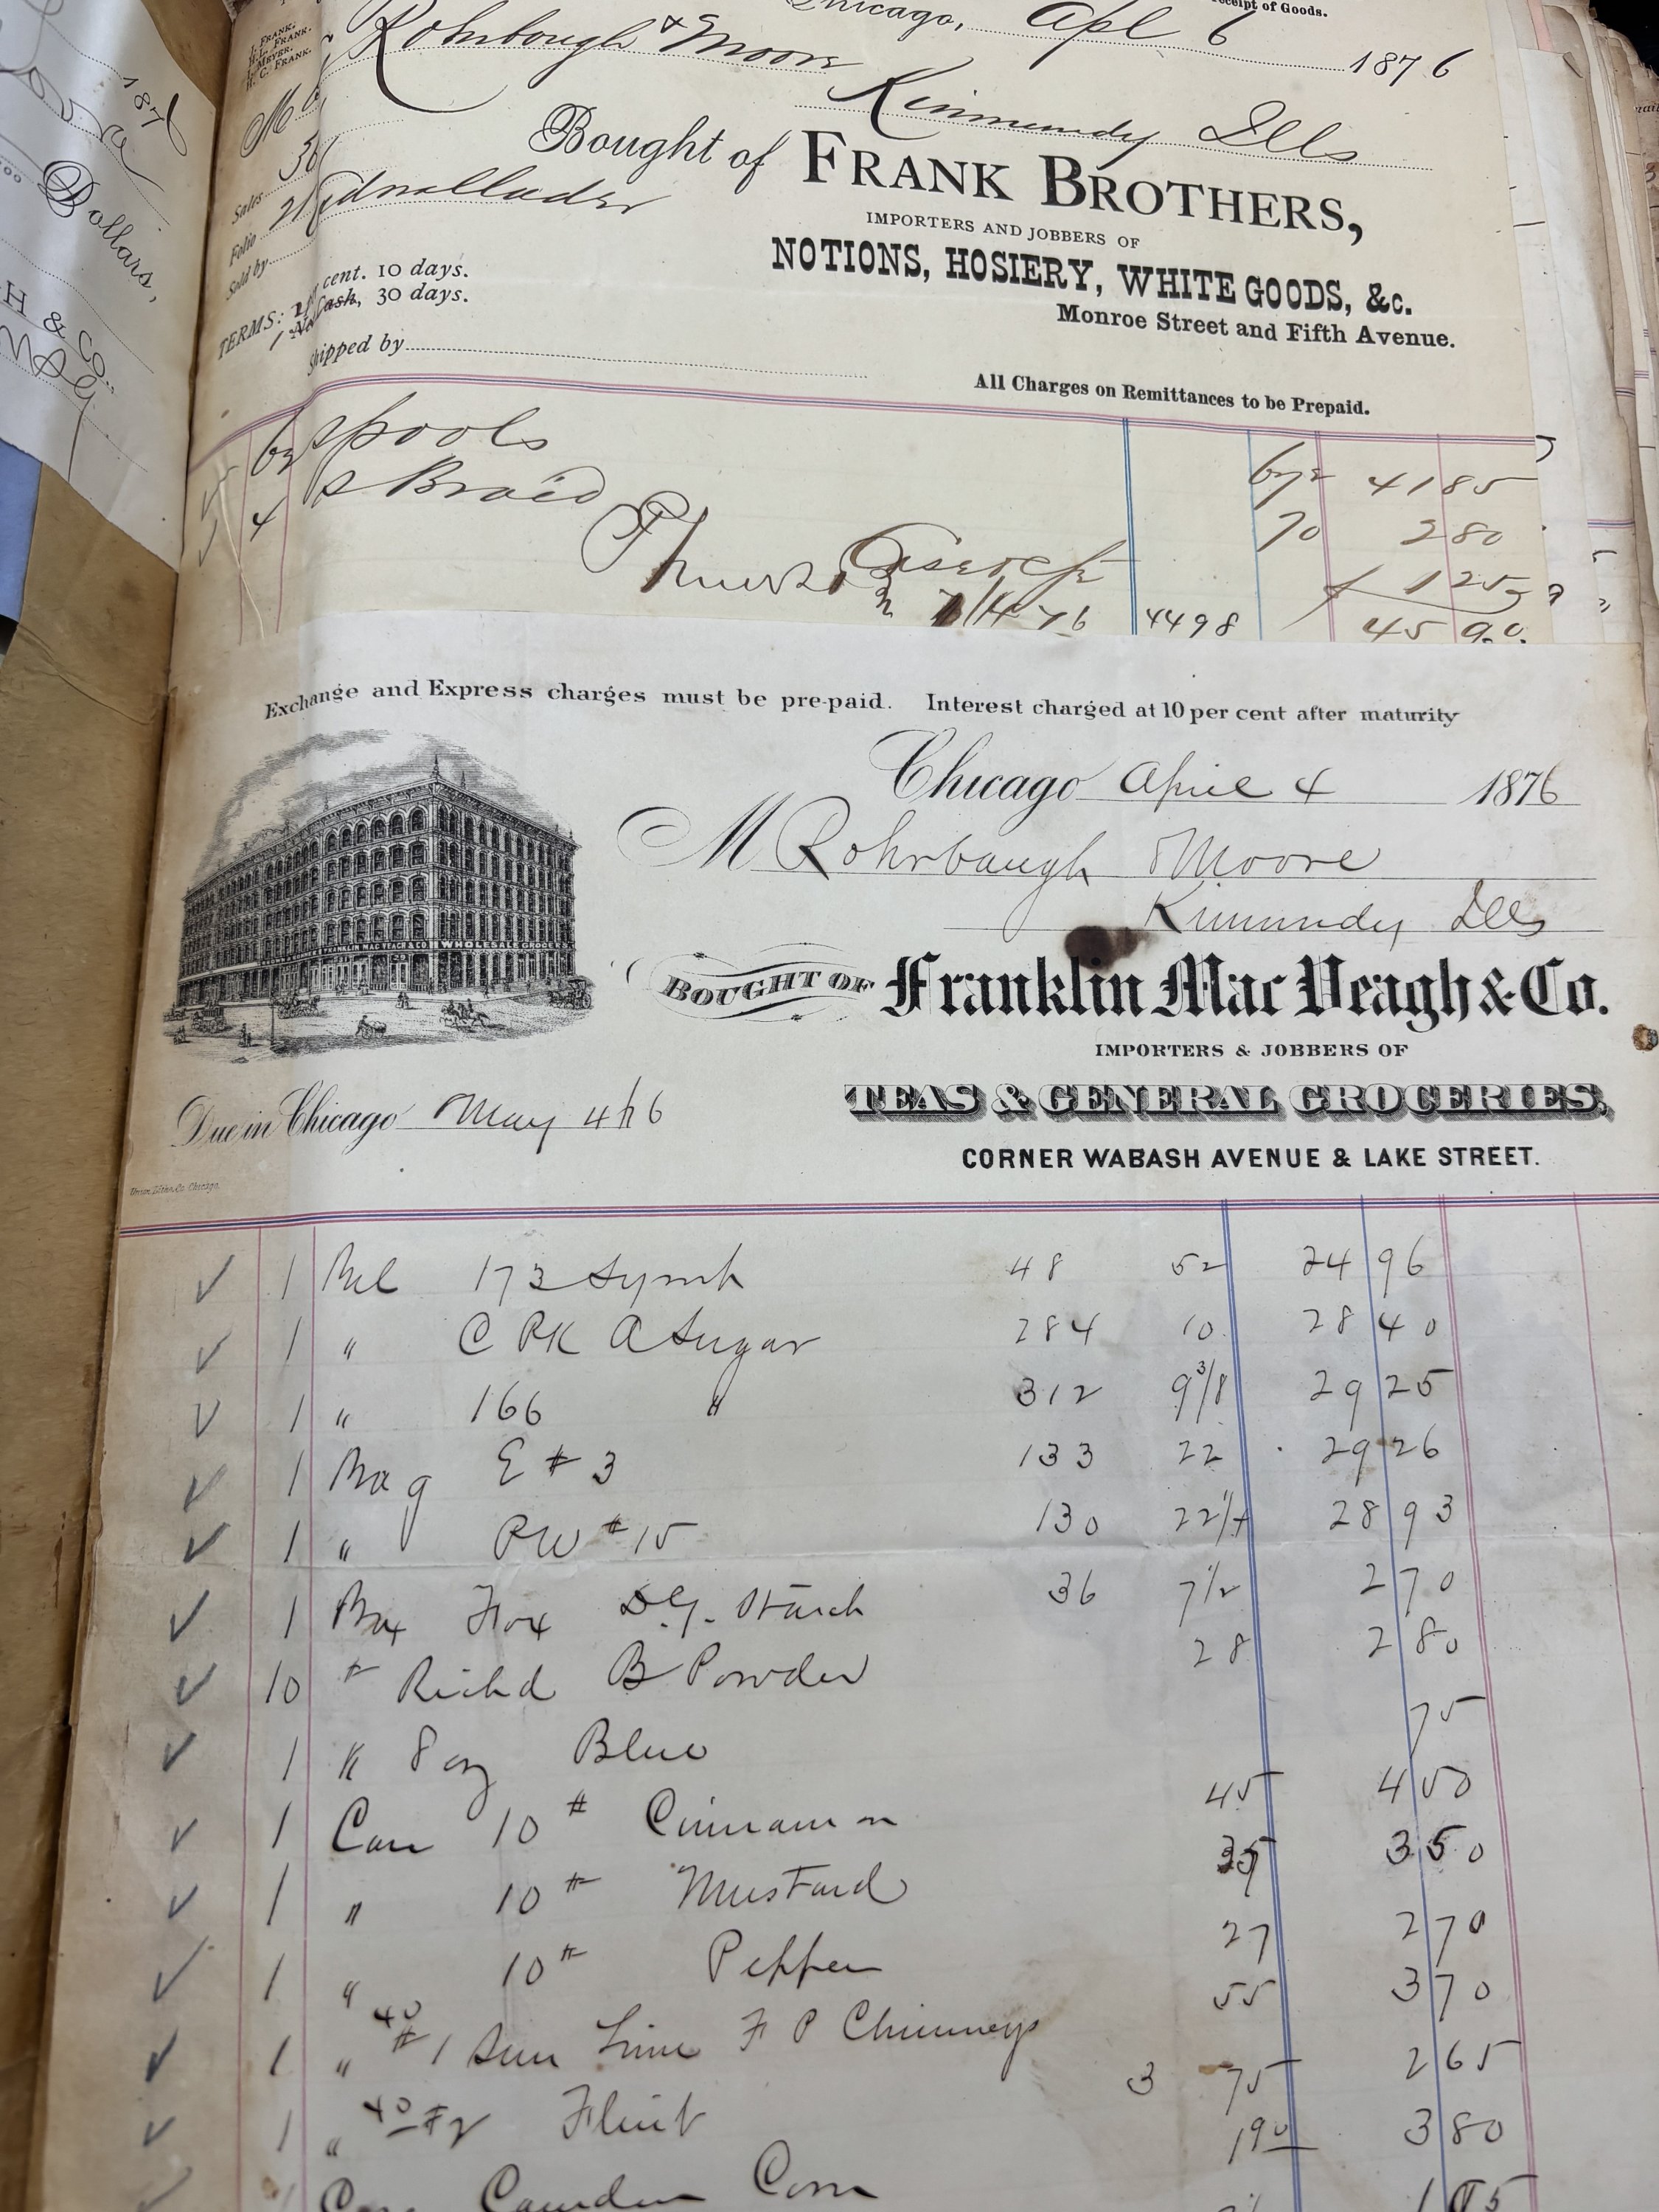 187
Dollars,
H & CO.
J. FRANK.
L. FRANK.
MEYER.
H. C. FRANK.
Receipt of Goods.
Chicago, Apl 6 1876
Rohrbough & Moore
Kinmundy Ills
Bought of FRANK BROTHERS,
IMPORTERS AND JOBBERS OF
NOTIONS, HOSIERY, WHITE GOODS, &c.
Monroe Street and Fifth Avenue.
Sales
Folio
Sold by
TERMS: cent. 10 days.
Cash, 30 days.
Shipped by
All Charges on Remittances to be Prepaid.
Spools 41 85
4 Braid 70 2 80
1 25
76 4498 45 90
Exchange and Express charges must be pre-paid. Interest charged at 10 per cent after maturity
Chicago April 4 1876
M Rohrbaugh & Moore
Kinmundy Ills
FRANKLIN MAC VEAGH & CO WHOLESALE GROCERS
BOUGHT OF Franklin Mac Veagh & Co.
IMPORTERS & JOBBERS OF
TEAS & GENERAL GROCERIES,
CORNER WABASH AVENUE & LAKE STREET.
Due in Chicago May 4/76
1 Bbl 173 48 52 24 96
1 " C A Sugar 284 10 28 40
1 " 166 " 312 9 3/8 29 25
1 Bag E # 3 133 22 29 26
1 " PW # 15 130 22 1/4 28 93
1 Box Fox D.G. Starch 36 7 1/2 2 70
10 # Richd B Powder 28 2 80
1 8 oz Blue 75
1 Can 10 # Cinnamon 45 4 50
1 " 10 # Mustard 35 3 50
1 " 10 # Pepper 27 2 70
1 " # 1 Sun F P Chimneys 55 3 70
1 " # 2 Flint 3 75 2 65
190 3 80
1 Camden Corn